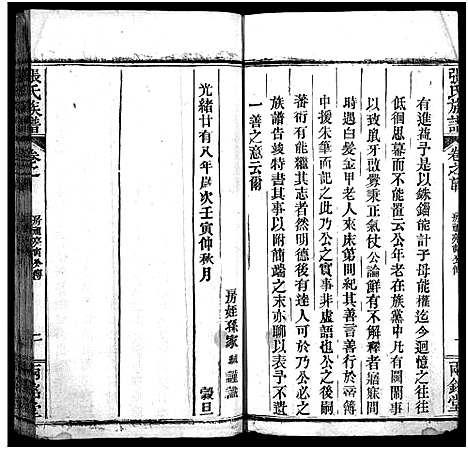 張氏族譜
卷之前
兩銘堂
有進益子是以銖錙能計子母能權迄今迴憶之往往
低徊思慕而不能置云公年老在族黨中凡有閧鬧事
以致鼠牙啟釁秉正氣仗公論鮮有不解者癸寐間
時遇白髮金甲老人來床第間紀其善言善行於善簿
中援朱筆面記之此乃公之實事非虛語也公之後嗣
蕃衍有能繼其志者然明德後有達人可於乃公必之
族譜告竣特書其事以附簡端之末亦聊以表予不遺
一善之意云爾
房姪孫家 謹識
光緒廿有八年歲次壬寅仲秋月 穀旦
張氏族譜
卷之
兩銘堂